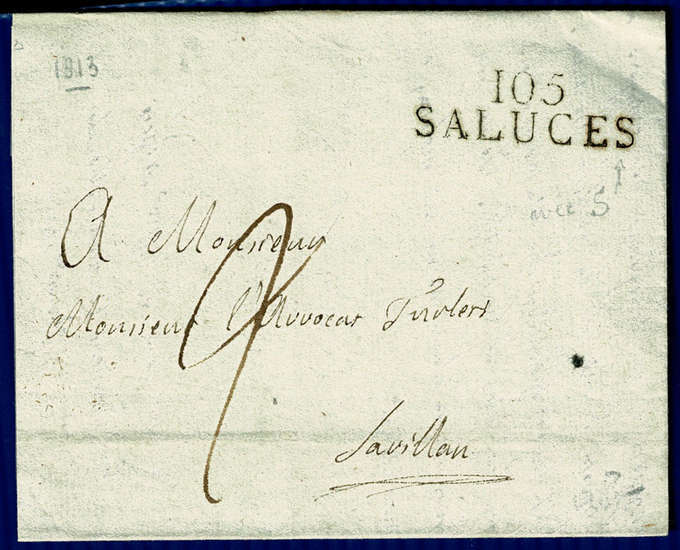 1813
105
SALUCES
avec S
A Monsieur
Monsieur l'Avvocat
Savillan